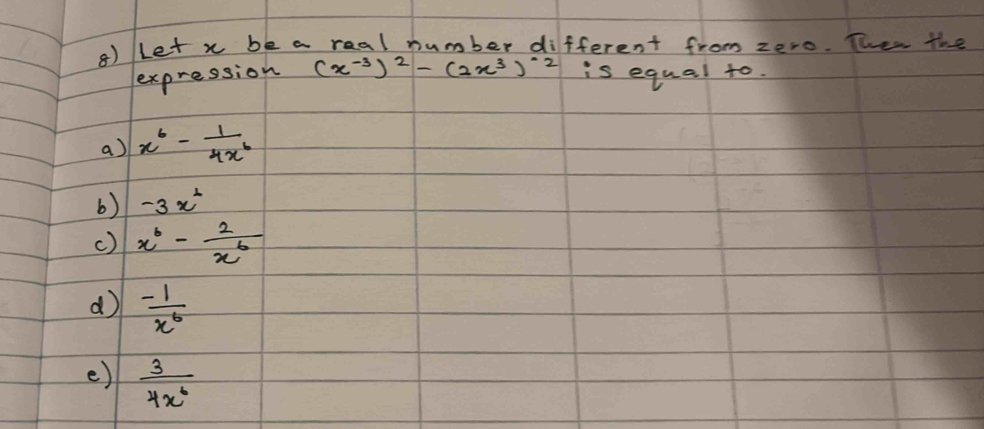 8) Let x be a real number different from zero. Then the
expression (x⁻³)² - (2x³)⁻² is equal to.
a) x⁶ - 1/4x⁶
b) -3x²
c) x⁶ - 2/x⁶
d) -1/x⁶
e) 3/4x⁶